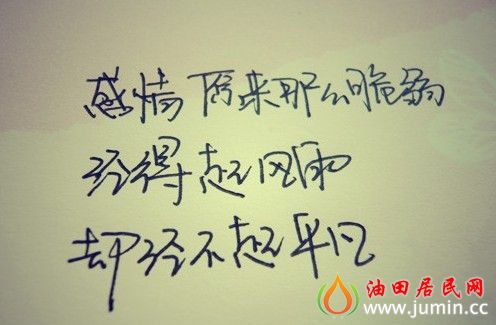 感情原来那么脆弱
经得起风雨
却经不起平凡
油田居民网
www.jumin.cc